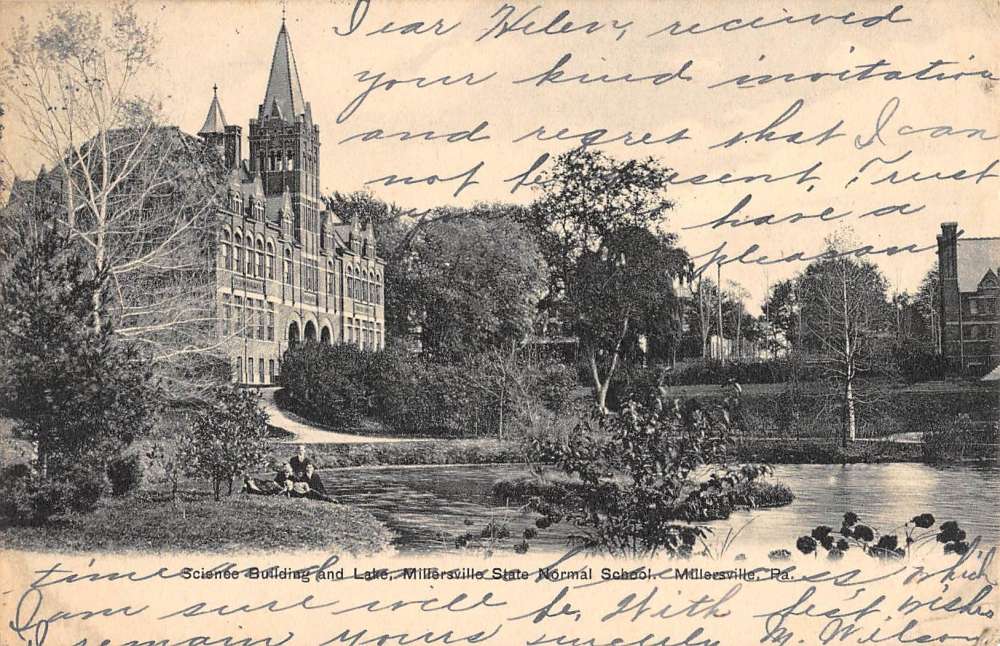 Dear Helen, received
your kind invitation
and regret that I can
not be present, Trust
have a
pleasant
time and
Science Building and Lake, Millersville State Normal School. Millersville, Pa.
success which
I am sure will be, With best wishes
I remain yours sincerely M. Wilson.